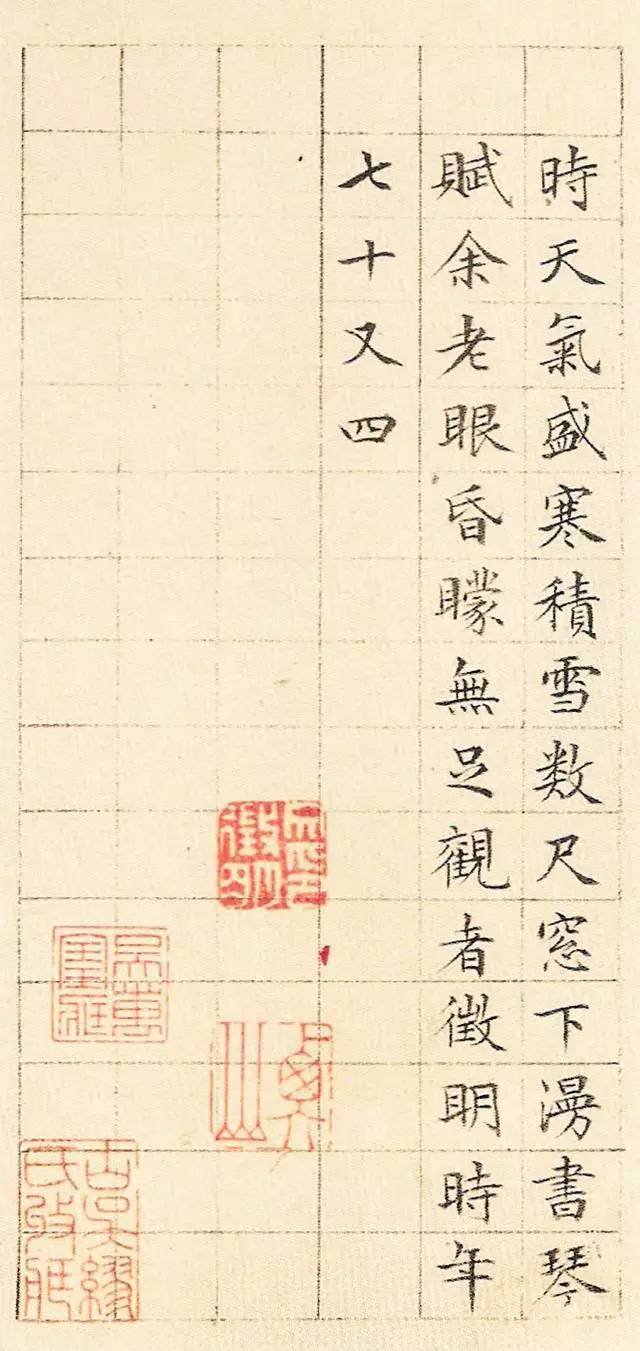 時天氣盛寒積雪数尺窓下漫書琴
賦余老眼昏矇無足觀者徴明時年
七十又四